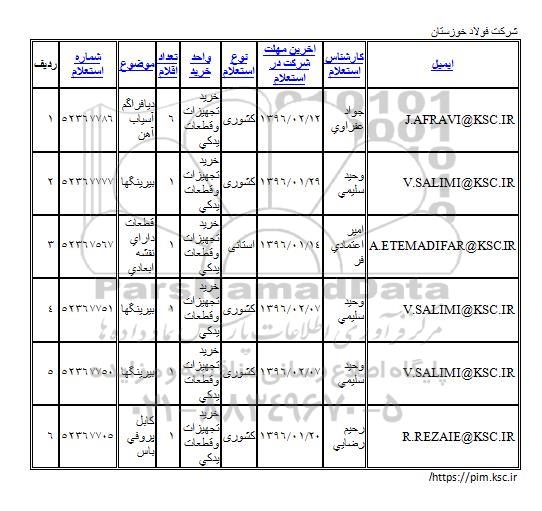 شرکت فولاد خوزستان
ردیف | شماره استعلام | موضوع | تعداد اقلام | واحد خرید | نوع استعلام | آخرین مهلت شرکت در استعلام | کارشناس استعلام | ایمیل
۱ | ۵۲۳۶۷۷۸۶ | دیافراگم آسیاب آهن | ۶ | خرید تجهیزات وقطعات یدکي | کشوری | ۱۳۹۶/۰۲/۱۲ | جواد عفراوي | J.AFRAVI@KSC.IR
۲ | ۵۲۳۶۷۷۷۷ | بیرینگها | ۱ | خرید تجهیزات وقطعات یدکي | کشوری | ۱۳۹۶/۰۱/۲۹ | وحید سلیمي | V.SALIMI@KSC.IR
۳ | ۵۲۳۶۷۵۶۷ | قطعات داراي نقشه ابعادي | ۱ | خرید تجهیزات وقطعات یدکي | استانی | ۱۳۹۶/۰۱/۱۴ | امیر اعتمادي فر | A.ETEMADIFAR@KSC.IR
۴ | ۵۲۳۶۷۷۵۱ | بیرینگها | ۱ | خرید تجهیزات وقطعات یدکي | کشوری | ۱۳۹۶/۰۲/۰۷ | وحید سلیمي | V.SALIMI@KSC.IR
۵ | ۵۲۳۶۷۷۵۰ | بیرینگها | ۱ | خرید تجهیزات وقطعات یدکي | کشوری | ۱۳۹۶/۰۲/۰۷ | وحید سلیمي | V.SALIMI@KSC.IR
۶ | ۵۲۳۶۷۷۰۵ | کابل پروفي باس | ۱ | خرید تجهیزات وقطعات یدکي | کشوری | ۱۳۹۶/۰۱/۲۰ | رحیم رضایي | R.REZAIE@KSC.IR
ParsNamadData
مرکز فرآوری اطلاعات پارس نماد داده ها
پایگاه اطلاع رسانی مناقصه و مزایده
۰۲۱-۸۸۳۴۹۶۷۰-۵
/https://pim.ksc.ir